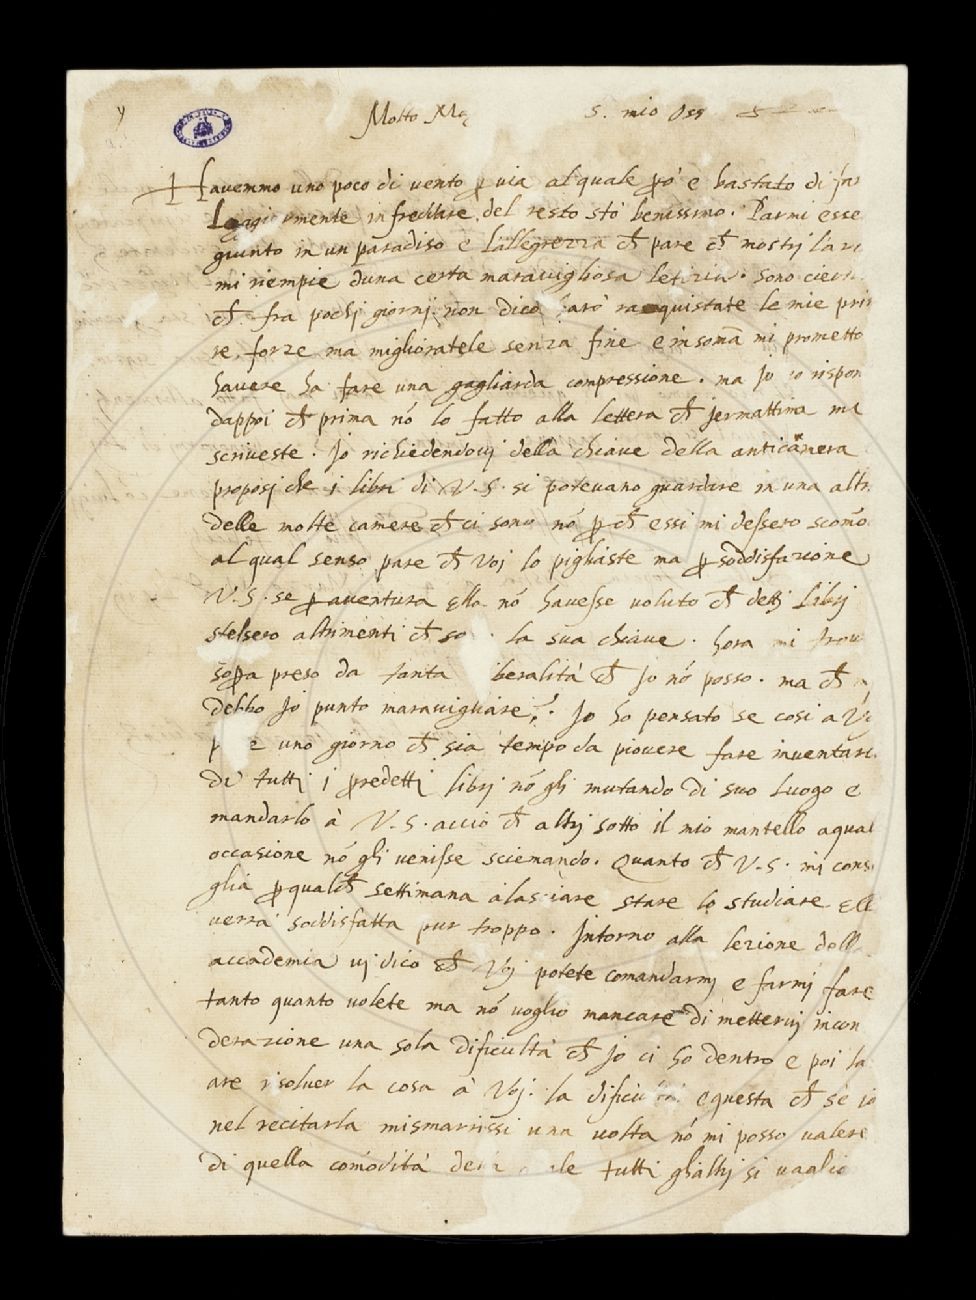 Molto Mag S. mio Oss
Havemmo uno poco di vento p via al quale po è bastato di far
mente infreddare, del resto stò benissimo. Parmi esse
giunto in un paradiso e Lallegrezza ch pare ch mostrj la
mi riempie duna certa maravigliosa letizia. sono
ch fra pochj giornj non dico harò raquistate le mie pri
re, forze ma miglioratele senza fine e in soma mi prometto
havere ha fare una gagliarda compressione. ma Jo rispon
dappoi ch prima nō lo fatto alla lettera ch jermattina mi
scriveste. Jo richiedendovj della chiave della anticamera
proposj che i libri di V.S. si potevano guardare in una altr
delle molte camere ch ci sono nō p ch essi mi dessero scomo
al qual senso pare ch Voj lo pigliaste ma p soddisfazione
V.S. se p aventura ella nō havesse voluto ch dettj Librj
stessero altrimenti ch so la sua chiave. hora mi trov
sopra preso da tanta iberalità ch Jo nō posso. ma ch
debbo Jo punto maravigliare? Jo ho pensato se così a V
p e uno giorno ch sia tempo da piovere fare inventari
di tutti i predetti librj nō gli mutando di suo Luogo e
mandarlo à V.S. acciò ch altrj sotto il mio mantello a qual
occasione nō gli venisse sciemando. Quanto ch V.S. mi consi
glia p qualch settimana à lasciare stare lo studiare Ell
verrà soddisfatta pur troppo. Intorno alla lezione dell
accademia vj dico ch Voj potete comandarmj e farmj fare
tanto quanto volete ma nō voglio mancare di mettervj incon
derazione una sola dificultà ch Jo ci ho dentro e poi la
are risolver la cosa à Voj. la dificu equesta ch se io
nel recitarla mismarrissi una volta nō mi posso valere
di quella comodità de le tutti glialtrj si vaglio